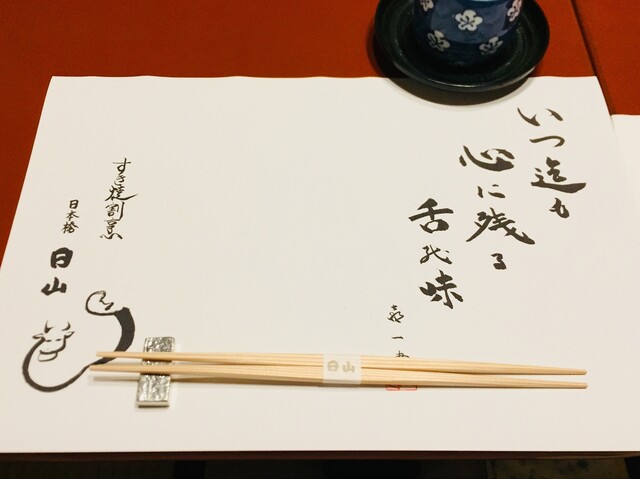 いつ迄も
心に残る
舌の味
喜一
すき焼割烹
日本橋
日山
日山